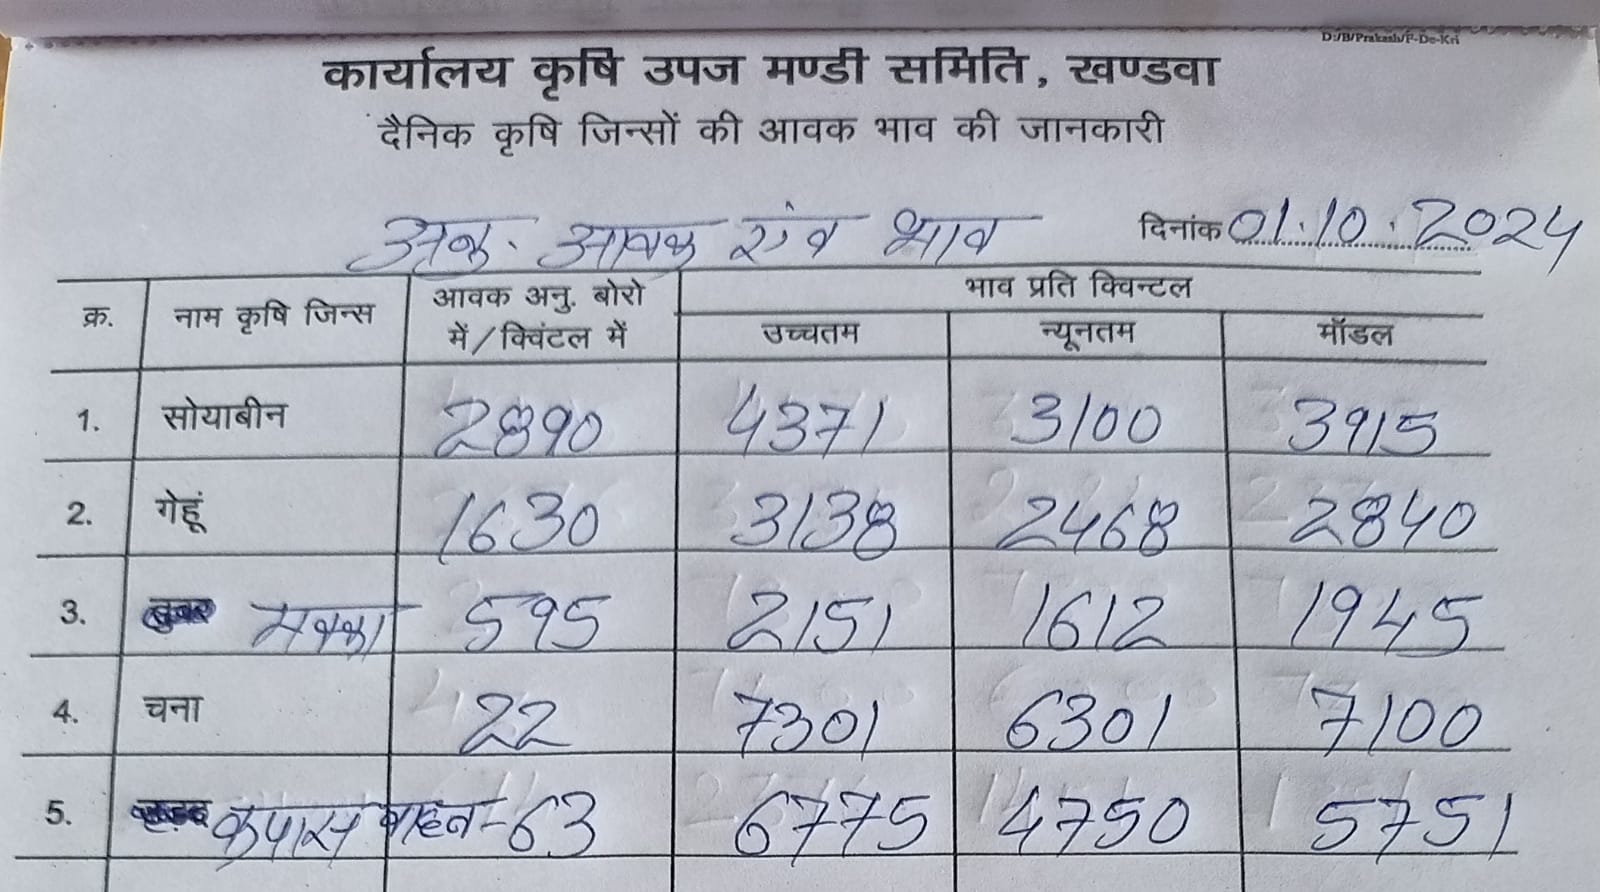 D:/B/Prakash/F-De-Kri
कार्यालय कृषि उपज मण्डी समिति, खण्डवा
दैनिक कृषि जिन्सों की आवक भाव की जानकारी
आवक एंव भाव दिनांक 01.10.2024
क्र. नाम कृषि जिन्स आवक अनु. बोरो में/क्विंटल में भाव प्रति क्विन्टल
उच्चतम न्यूनतम मॉडल
1. सोयाबीन 2890 4371 3100 3915
2. गेहूं 1630 3138 2468 2840
3. मक्का 595 2151 1612 1945
4. चना 22 7301 6301 7100
5. कपास वाहन-63 6775 4750 5751